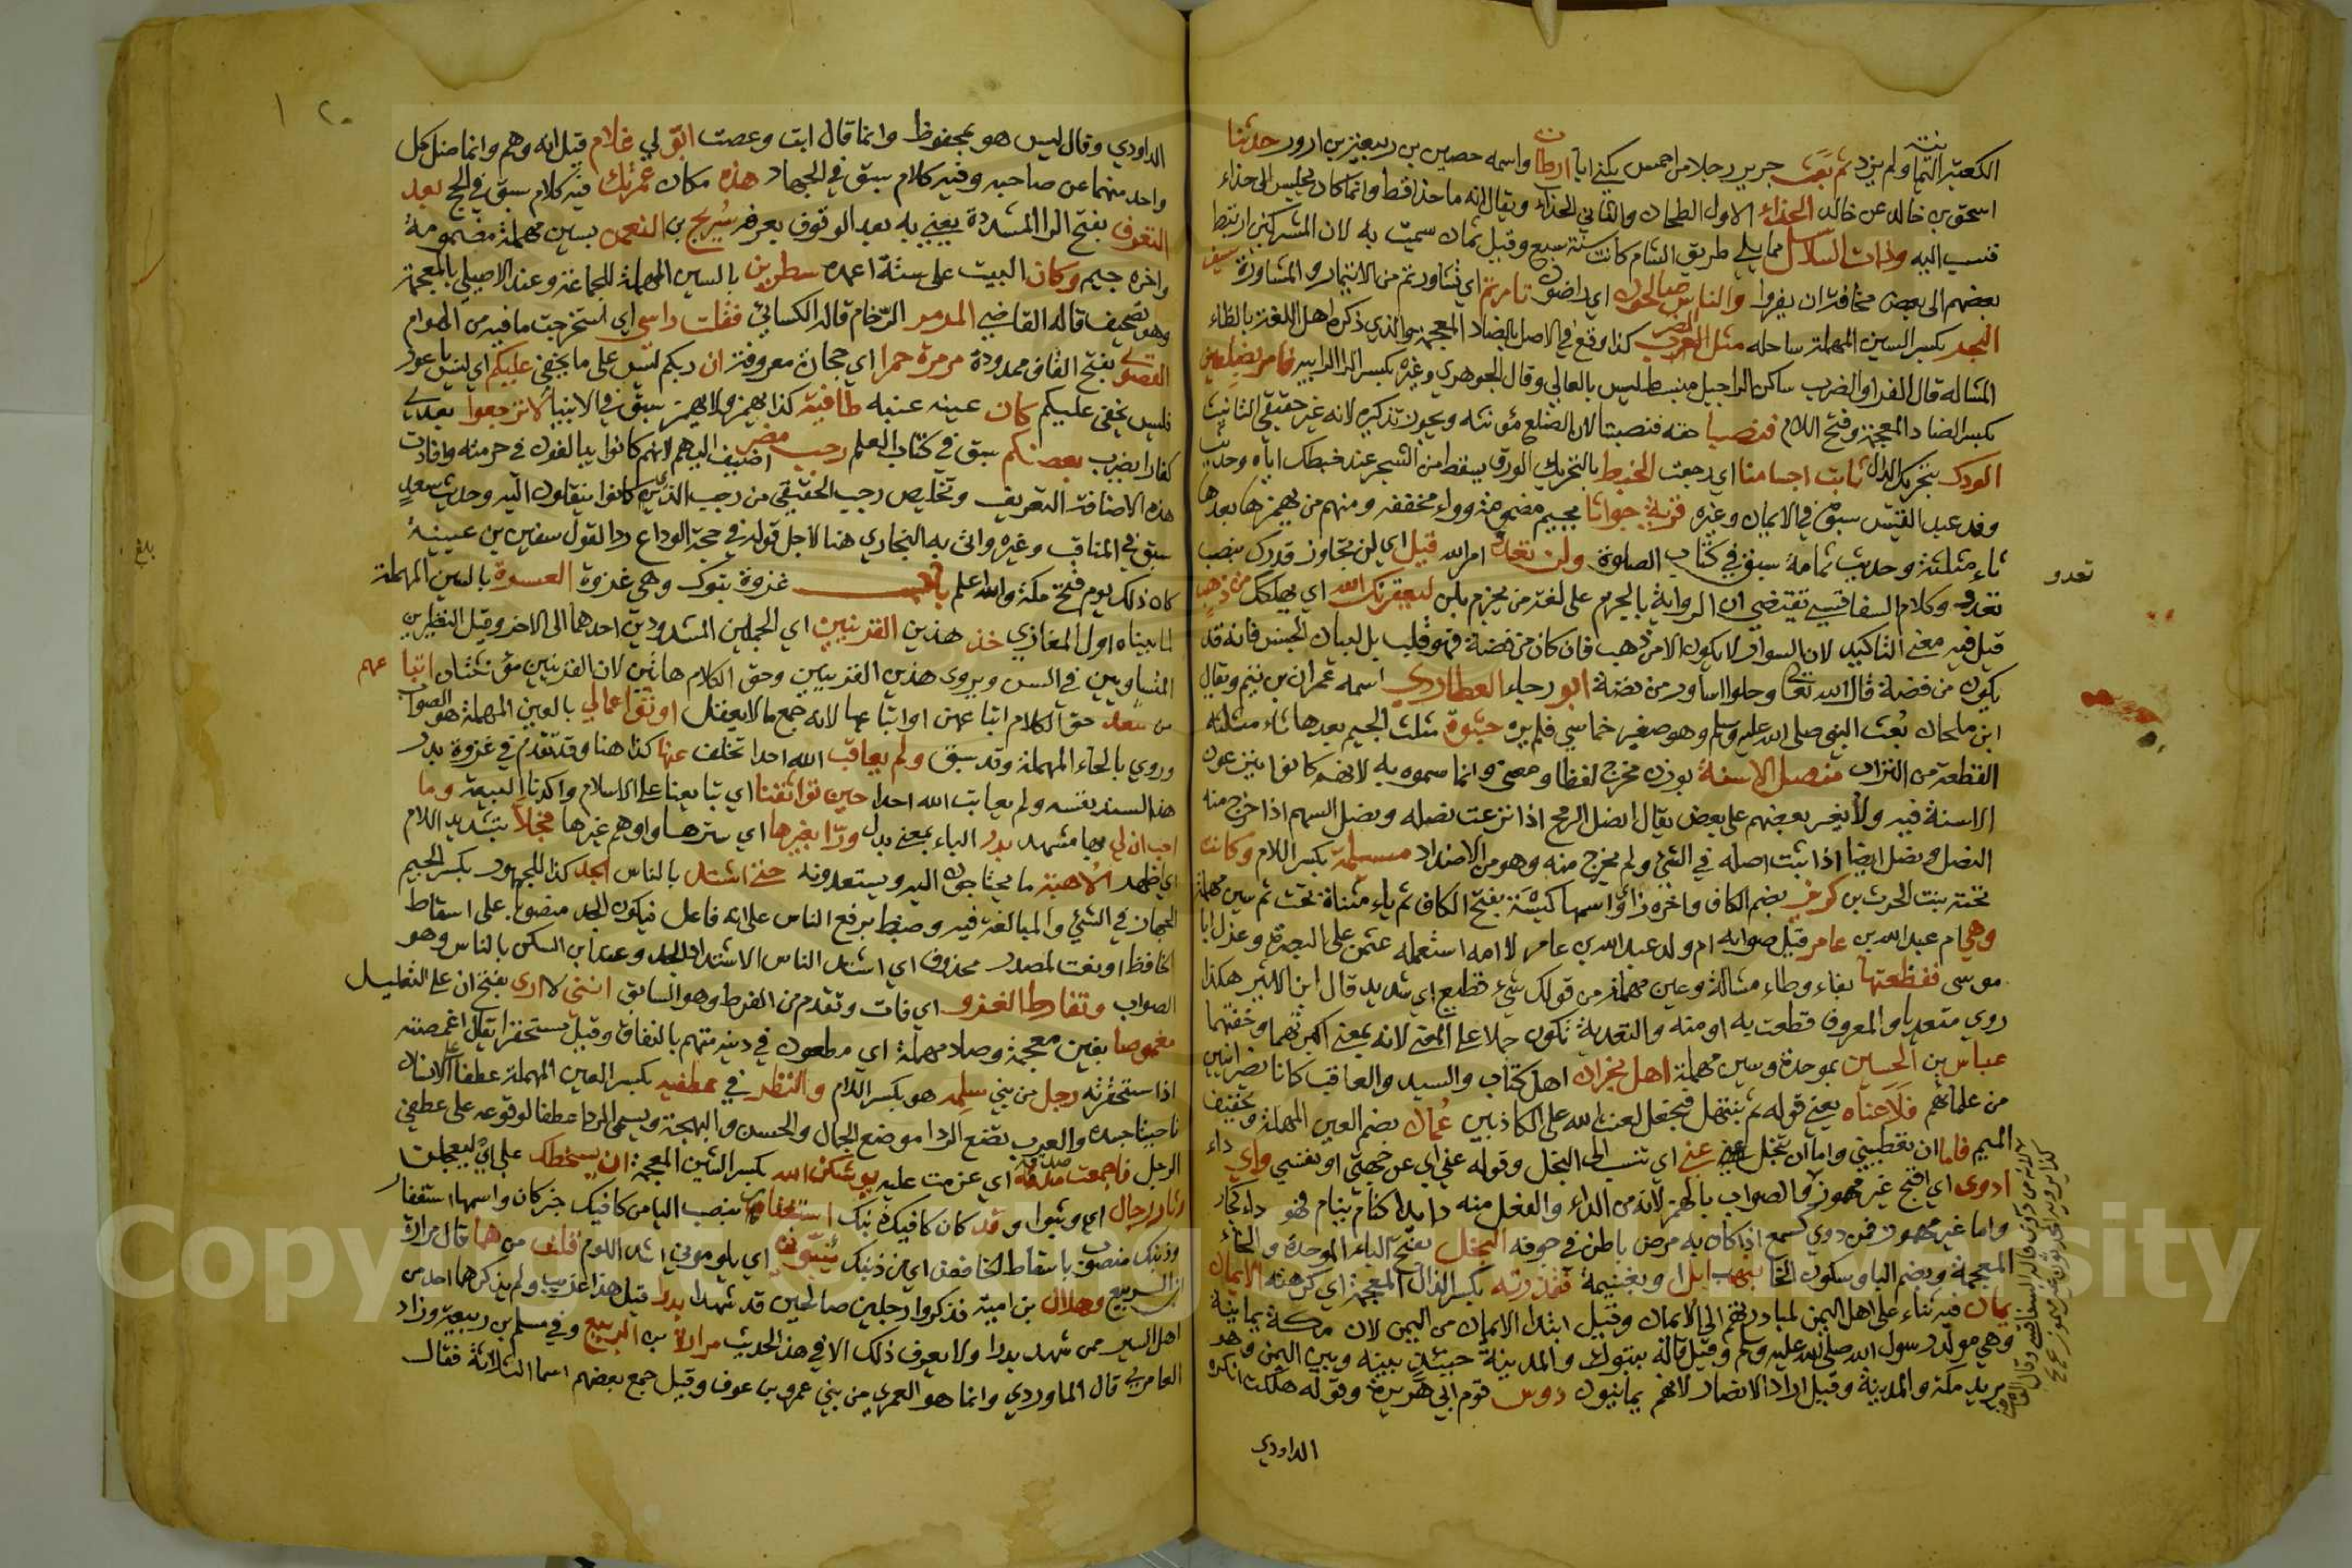 الكعبة اليمانية ولم يزد ثم بعث جرير رجلا من احمس يكنى ابا ارطاة واسمه حصين بن ربيعة بن ازور حدثنا
اسحق بن خالد عن خالد الحذاء الاول الطحان والثاني الحذاء ويقال انه ما حذا قط وانما كان يجلس الى حذاء
فنسب اليه وذات السلاسل مما يلي طريق الشام كانت سنة سبع وقيل ثمان سميت به لان المشركين ارتبط
بعضهم الى بعض مخافة ان يفروا والناس صالحون اي راضون تامرتم اي تشاورتم من الائتمار والمشاورة سيف
البحر بكسر السين المهملة ساحله مثل الظرب كذا وقع في الاصل بالضاد المعجمة والذي ذكره اهل اللغة بالظاء
المشالة قال الفراء والضرب ساكن الراجبل منبسط ليس بالعالي وقال الجوهري وغيره بكسر الراء الرابية فامر بضلعين
بكسر الضاد المعجمة وفتح اللام فنصبا حقه فنصبتا لان الضلع مؤنثه ويجوز تذكيره لانه غير حقيقي التانيث
الودك بتحريك الدال ثابت اجسامنا اي رجعت الخبط بالتحريك الورق يسقط من الشجر عند خبطك اياه وحديث
وفد عبد القيس سبق في الايمان وغيره قرية جواثا بجيم مضمومة وواو مخففه ومنهم من يهمزها بعدها
ثاء مثلثة وحديث ثمامة سبق في كتاب الصلوة ولن تعد امر الله قيل اي لن تجاوز قدرك بنصب
تعدو
تعدو وكلام السفاقسي تقتضي ان الرواية بالجزم على لغة من يجزم بلن ليعقرنك الله اي يهلكك من ذهب
قيل فيه معنى التاكيد لان السوار لا يكون الا من ذهب فان كان من فضة فهو قلب بل لبيان الجنس فانه قد
يكون من فضة قال الله تعالى وحلوا اساور من فضة ابو رجاء العطاردي اسمه عمران بن تيم ويقال
ابن ملحان بعث النبي صلى الله عليه وسلم وهو صغير خماسي فلم يره جثوة مثلث الجيم بعدها ثاء مثلثة
القطعة من التراب منصل الاسنة بوزن مخرج لفظا ومعنى وانما سموه به لانهم كانوا ينزعون
الاسنة فيه ولا يغير بعضهم على بعض يقال انصل الرمح اذا نزعت نصله ونصل السهم اذا خرج منه
النصل ونصل ايضا اذا ثبت اصله في الشيء ولم يخرج منه وهو من الاضداد مسيلمة بكسر اللام وكانت
تحته بنت الحرث بن كريز بضم الكاف واخره زاي واسمها كيسة بفتح الكاف ثم ياء مثناة تحت ثم سين مهملة
وهي ام عبد الله بن عامر قيل صوابه ام ولد عبد الله بن عامر لا امه استعمله عثمن على البصرة وعزل ابا
موسى ففظعتها بفاء وظاء مشالة وعين مهملة من قولك شيء فظيع اي شديد قال ابن الاثير هكذا
روي متعديا والمعروف فظعت به او منه والتعدية تكون حملا على المعنى لانه بمعنى اكبرتهما وخفتهما
عباس بن الحسين بموحدة وسين مهملة اهل نجران اهل كتاب والسيد والعاقب كانا نصرانيين
من علمائهم فلاعناه يعني قوله ثم نبتهل فنجعل لعنت الله على الكاذبين عمان بضم العين المهملة وتخفيف
الميم فاما ان تعطيني واما ان تبخل عني اي تنسب الى البخل وقوله عني اي عن جهتي او نفسي واي داء
ادوى اي اقبح غير مهموز والصواب بالهمز لانه من الداء والفعل منه داء يداء كنام ينام فهو داء كجار
واما غير مهموز فمن دوي كسمع اذا كان به مرض باطن في جوفه البخل بفتح الباء الموحدة والخاء
المعجمة وبضم الباء وسكون الخاء بنهب ابل او بغنيمة فقذرته بكسر الذال المعجمة اي كرهته الايمان
يمان فيه ثناء على اهل اليمن لمبادرتهم الى الايمان وقيل ابتداء الايمان من اليمن لان مكة يمانية
وهي مولد رسول الله صلى الله عليه وسلم وقيل قاله بتبوك والمدينة حينئذ بينه وبين اليمن وهو
يريد مكة والمدينة وقيل اراد الانصار لانهم يمانيون دوس قوم ابي هريرة وقوله هلكت انكره
الداودي
٢٠ ١
الداودي وقال ليس هو بمحفوظ وانما قال ابت وعصت ابق لي غلام قيل انه وهم وانما ضل كل
واحد منهما عن صاحبه وفيه كلام سبق في الجهاد هذه مكان عمرتك فيه كلام سبق في الحج بعد
التعرف بفتح الراء المشددة يعني به بعد الوقوف بعرفة سريج بن النعمن بسين مهملة مضمومة
واخره جيم وكان البيت على ستة اعمده سطرين بالسين المهملة للجماعة وعند الاصيلي بالمعجمة
وهو تصحيف قاله القاضي المرمر الرخام قاله الكسائي ففلت راسي اي استخرجت ما فيه من الهوام
القصوى بفتح القاف ممدودة مرمرة حمرا اي حجارة معروفة ان ربكم ليس على ما يخفى عليكم اي ليس باعور
فليس يخفى عليكم كان عينه عنبه طافية كذا يهمز ولا يهمز سبق في الانبياء لا ترجعوا بعدي
كفارا يضرب بعضكم سبق في كتاب العلم رجب مضر اضيف اليهم لانهم كانوا يبالغون في حرمته وافادت
هذه الاضافة التعريف وتخليص رجب الحقيقي من رجب الذي كانوا ينقلون اليه وحديث سعد
سبق في المناقب وغيره واتى به البخاري هنا لاجل قوله في حجة الوداع ردا لقول سفين بن عيينة
بلغ
كان ذلك يوم فتح مكة والله اعلم باب غزوة تبوك وهي غزوة العسرة بالسين المهملة
لما بيناه اول المغازي خذ هذين القرينين اي الجملين المشدودين احدهما الى الاخر وقيل النظيرين
المتساويين في السن ويروى هذين القرينين وحق الكلام هاتين لان القرينين مؤنثتان ابتا عهم
من سعد حق الكلام ابتا عهن او ابتا عها لانه جمع ما لا يعقل اوثق اعمالي بالعين المهملة هو الصواب
وروي بالحاء المهملة وقد سبق ولم يعاقب الله احدا تخلف عنها كذا هنا وقد تقدم في غزوة بدر
هذا السند بنفسه ولم يعاتب الله احدا حين تواثقنا اي تبايعنا على الاسلام واكدنا البيعة وما
احب ان لي بها مشهد بدر الباء بمعنى بدل ورا بغيرها اي سترها واوهم غيرها فجلا بتشديد اللام
اي اظهر الاهبة ما يحتاجون اليه ويستعدونه حتى اشتد بالناس الجد كذا للجمهور بكسر الجيم
الجهاز في الشيء والمبالغة فيه وضبط برفع الناس على انه فاعل فيكون الجد منصوبا على اسقاط
الخافظ او نعت لمصدر محذوف اي اشتد الناس الاشتداد الجد وعند ابن السكن بالناس وهو
الصواب وتفارط الغزو اي فات وتقدم من الفرط وهو السابق انني لا ارى بفتح ان على التعليل
مغموصا بغين معجمة وصاد مهملة اي مطعون في دينه متهم بالنفاق وقيل مستحقرا يقال اغمصته
اذا ستحقرته رجل من بني سلمه هو بكسر اللام والنظر في عطفيه بكسر العين المهملة عطفا الانسان
ناحيتا جسده والعرب تضع الردا موضع الجمال والحسن والبهجة ويسمى الردا عطفا لوقوعه على عطفي
الرجل فاجمعت صدقه اي عزمت عليه يوشكن الله بكسر الشين المعجمة ان يسخطك علي اي ليعجلن
وثار رجال اي وثبوا وقد كان كافيك ذنبك استغفار بنصب الياء من كافيك خبر كان واسمها استغفار
وذنبك منصوب باسقاط الخافض اي من ذنبك يؤنبوني اي يلوموني اشد اللوم قلت من هما قال مرارة
بن الربيع وهلال بن امية فذكروا رجلين صالحين قد شهدا بدرا قيل هذا غريب ولم يذكرهما احد من
اهل السير ممن شهد بدرا ولا يعرف ذلك الا في هذا الحديث مرارة بن الربيع وفي مسلم بن ربيعة وزاد
العامري قال الماوردي وانما هو العمري من بني عمرو بن عوف وقيل جمع بعضهم اسما الثلاثة فقال
Copyright © King Saud University